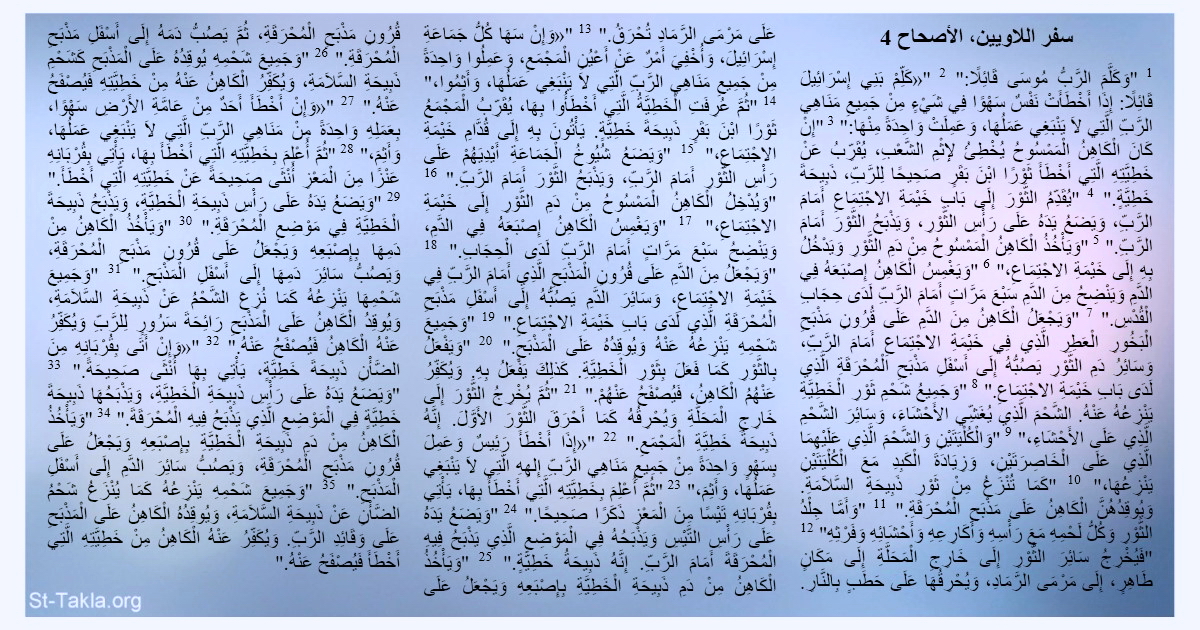 سفر اللاويين، الأصحاح 4
1 "وَكَلَّمَ الرَّبُّ مُوسَى قَائِلًا:" 2 "«كَلِّمْ بَنِي إِسْرَائِيلَ
قَائِلًا: إِذَا أَخْطَأَتْ نَفْسٌ سَهْوًا فِي شَيْءٍ مِنْ جَمِيعِ مَنَاهِي
الرَّبِّ الَّتِي لاَ يَنْبَغِي عَمَلُهَا، وَعَمِلَتْ وَاحِدَةً مِنْهَا:" 3 "إِنْ
كَانَ الْكَاهِنُ الْمَمْسُوحُ يُخْطِئُ لإِثْمِ الشَّعْبِ، يُقَرِّبُ عَنْ
خَطِيَّتِهِ الَّتِي أَخْطَأَ ثَوْرًا ابْنَ بَقَرٍ صَحِيحًا لِلرَّبِّ، ذَبِيحَةَ
خَطِيَّةٍ." 4 "يُقَدِّمُ الثَّوْرَ إِلَى بَابِ خَيْمَةِ الاجْتِمَاعِ أَمَامَ
الرَّبِّ، وَيَضَعُ يَدَهُ عَلَى رَأْسِ الثَّوْرِ، وَيَذْبَحُ الثَّوْرَ أَمَامَ
الرَّبِّ." 5 "وَيَأْخُذُ الْكَاهِنُ الْمَمْسُوحُ مِنْ دَمِ الثَّوْرِ وَيَدْخُلُ
بِهِ إِلَى خَيْمَةِ الاجْتِمَاعِ،" 6 "وَيَغْمِسُ الْكَاهِنُ إِصْبَعَهُ فِي
الدَّمِ وَيَنْضِحُ مِنَ الدَّمِ سَبْعَ مَرَّاتٍ أَمَامَ الرَّبِّ لَدَى حِجَابِ
الْقُدْسِ." 7 "وَيَجْعَلُ الْكَاهِنُ مِنَ الدَّمِ عَلَى قُرُونِ مَذْبَحِ
الْبَخُورِ الْعَطِرِ الَّذِي فِي خَيْمَةِ الاجْتِمَاعِ أَمَامَ الرَّبِّ،
وَسَائِرُ دَمِ الثَّوْرِ يَصُبُّهُ إِلَى أَسْفَلِ مَذْبَحِ الْمُحْرَقَةِ الَّذِي
لَدَى بَابِ خَيْمَةِ الاجْتِمَاعِ." 8 "وَجَمِيعُ شَحْمِ ثَوْرِ الْخَطِيَّةِ
يَنْزِعُهُ عَنْهُ. الشَّحْمَ الَّذِي يُغَشِّي الأَحْشَاءَ، وَسَائِرَ الشَّحْمِ
الَّذِي عَلَى الأَحْشَاءِ،" 9 "وَالْكُلْيَتَيْنِ وَالشَّحْمَ الَّذِي عَلَيْهِمَا
الَّذِي عَلَى الْخَاصِرَتَيْنِ، وَزِيَادَةَ الْكَبِدِ مَعَ الْكُلْيَتَيْنِ
يَنْزِعُهَا،" 10 "كَمَا تُنْزَعُ مِنْ ثَوْرِ ذَبِيحَةِ السَّلاَمَةِ.
وَيُوقِدُهُنَّ الْكَاهِنُ عَلَى مَذْبَحِ الْمُحْرَقَةِ." 11 "وَأَمَّا جِلْدُ
الثَّوْرِ وَكُلُّ لَحْمِهِ مَعَ رَأْسِهِ وَأَكَارِعِهِ وَأَحْشَائِهِ وَفَرْثِهِ" 12
"فَيُخْرِجُ سَائِرَ الثَّوْرِ إِلَى خَارِجِ الْمَحَلَّةِ إِلَى مَكَانٍ
طَاهِرٍ، إِلَى مَرْمَى الرَّمَادِ، وَيُحْرِقُهَا عَلَى حَطَبٍ بِالنَّارِ.
عَلَى مَرْمَى الرَّمَادِ تُحْرَقُ." 13 "«وَإِنْ سَهَا كُلُّ جَمَاعَةِ
إِسْرَائِيلَ، وَأُخْفِيَ أَمْرٌ عَنْ أَعْيُنِ الْمَجْمَعِ، وَعَمِلُوا وَاحِدَةً
مِنْ جَمِيعِ مَنَاهِي الرَّبِّ الَّتِي لاَ يَنْبَغِي عَمَلُهَا، وَأَثِمُوا،"
14 "ثُمَّ عُرِفَتِ الْخَطِيَّةُ الَّتِي أَخْطَأُوا بِهَا، يُقَرِّبُ الْمَجْمَعُ
ثَوْرًا ابْنَ بَقَرٍ ذَبِيحَةَ خَطِيَّةٍ. يَأْتُونَ بِهِ إِلَى قُدَّامِ خَيْمَةِ
الاجْتِمَاعِ،" 15 "وَيَضَعُ شُيُوخُ الْجَمَاعَةِ أَيْدِيَهُمْ عَلَى
رَأْسِ الثَّوْرِ أَمَامَ الرَّبِّ، وَيَذْبَحُ الثَّوْرَ أَمَامَ الرَّبِّ." 16
"وَيُدْخِلُ الْكَاهِنُ الْمَمْسُوحُ مِنْ دَمِ الثَّوْرِ إِلَى خَيْمَةِ
الاجْتِمَاعِ،" 17 "وَيَغْمِسُ الْكَاهِنُ إِصْبَعَهُ فِي الدَّمِ،
وَيَنْضِحُ سَبْعَ مَرَّاتٍ أَمَامَ الرَّبِّ لَدَى الْحِجَابِ." 18
"وَيَجْعَلُ مِنَ الدَّمِ عَلَى قُرُونِ الْمَذْبَحِ الَّذِي أَمَامَ الرَّبِّ فِي
خَيْمَةِ الاجْتِمَاعِ، وَسَائِرَ الدَّمِ يَصُبُّهُ إِلَى أَسْفَلِ مَذْبَحِ
الْمُحْرَقَةِ الَّذِي لَدَى بَابِ خَيْمَةِ الاجْتِمَاعِ." 19 "وَجَمِيعَ
شَحْمِهِ يَنْزِعُهُ عَنْهُ وَيُوقِدُهُ عَلَى الْمَذْبَحِ." 20 "وَيَفْعَلُ
بِالثَّوْرِ كَمَا فَعَلَ بِثَوْرِ الْخَطِيَّةِ. كَذلِكَ يَفْعَلُ بِهِ. وَيُكَفِّرُ
عَنْهُمُ الْكَاهِنُ، فَيُصْفَحُ عَنْهُمْ." 21 "ثُمَّ يُخْرِجُ الثَّوْرَ إِلَى
خَارِجِ الْمَحَلَّةِ وَيُحْرِقُهُ كَمَا أَحْرَقَ الثَّوْرَ الأَوَّلَ. إِنَّهُ
ذَبِيحَةُ خَطِيَّةِ الْمَجْمَعِ." 22 "«إِذَا أَخْطَأَ رَئِيسٌ وَعَمِلَ
بِسَهْوٍ وَاحِدَةً مِنْ جَمِيعِ مَنَاهِي الرَّبِّ إِلهِهِ الَّتِي لاَ يَنْبَغِي
عَمَلُهَا، وَأَثِمَ،" 23 "ثُمَّ أُعْلِمَ بِخَطِيَّتِهِ الَّتِي أَخْطَأَ بِهَا، يَأْتِي
بِقُرْبَانِهِ تَيْسًا مِنَ الْمَعْزِ ذَكَرًا صَحِيحًا." 24 "وَيَضَعُ يَدَهُ
عَلَى رَأْسِ التَّيْسِ وَيَذْبَحُهُ فِي الْمَوْضِعِ الَّذِي يَذْبَحُ فِيهِ
الْمُحْرَقَةَ أَمَامَ الرَّبِّ. إِنَّهُ ذَبِيحَةُ خَطِيَّةٍ." 25 "وَيَأْخُذُ
الْكَاهِنُ مِنْ دَمِ ذَبِيحَةِ الْخَطِيَّةِ بِإِصْبَعِهِ وَيَجْعَلُ عَلَى
قُرُونِ مَذْبَحِ الْمُحْرَقَةِ، ثُمَّ يَصُبُّ دَمَهُ إِلَى أَسْفَلِ مَذْبَحِ
الْمُحْرَقَةِ." 26 "وَجَمِيعَ شَحْمِهِ يُوقِدُهُ عَلَى الْمَذْبَحِ كَشَحْمِ
ذَبِيحَةِ السَّلاَمَةِ، وَيُكَفِّرُ الْكَاهِنُ عَنْهُ مِنْ خَطِيَّتِهِ فَيُصْفَحُ
عَنْهُ." 27 "«وَإِنْ أَخْطَأَ أَحَدٌ مِنْ عَامَّةِ الأَرْضِ سَهْوًا،
بِعَمَلِهِ وَاحِدَةً مِنْ مَنَاهِي الرَّبِّ الَّتِي لاَ يَنْبَغِي عَمَلُهَا،
وَأَثِمَ،" 28 "ثُمَّ أُعْلِمَ بِخَطِيَّتِهِ الَّتِي أَخْطَأَ بِهَا، يَأْتِي بِقُرْبَانِهِ
عَنْزًا مِنَ الْمَعْزِ أُنْثَى صَحِيحَةً عَنْ خَطِيَّتِهِ الَّتِي أَخْطَأَ."
29 "وَيَضَعُ يَدَهُ عَلَى رَأْسِ ذَبِيحَةِ الْخَطِيَّةِ، وَيَذْبَحُ ذَبِيحَةَ
الْخَطِيَّةِ فِي مَوْضِعِ الْمُحْرَقَةِ." 30 "وَيَأْخُذُ الْكَاهِنُ مِنْ
دَمِهَا بِإِصْبَعِهِ وَيَجْعَلُ عَلَى قُرُونِ مَذْبَحِ الْمُحْرَقَةِ،
وَيَصُبُّ سَائِرَ دَمِهَا إِلَى أَسْفَلِ الْمَذْبَحِ." 31 "وَجَمِيعَ
شَحْمِهَا يَنْزِعُهُ كَمَا نُزِعَ الشَّحْمُ عَنْ ذَبِيحَةِ السَّلاَمَةِ،
وَيُوقِدُ الْكَاهِنُ عَلَى الْمَذْبَحِ رَائِحَةَ سَرُورٍ لِلرَّبِّ وَيُكَفِّرُ
عَنْهُ الْكَاهِنُ فَيُصْفَحُ عَنْهُ." 32 "«وَإِنْ أَتَى بِقُرْبَانِهِ مِنَ
الضَّأْنِ ذَبِيحَةَ خَطِيَّةٍ، يَأْتِي بِهَا أُنْثَى صَحِيحَةً." 33
"وَيَضَعُ يَدَهُ عَلَى رَأْسِ ذَبِيحَةِ الْخَطِيَّةِ، وَيَذْبَحُهَا ذَبِيحَةَ
خَطِيَّةٍ فِي الْمَوْضِعِ الَّذِي يَذْبَحُ فِيهِ الْمُحْرَقَةَ." 34 "وَيَأْخُذُ
الْكَاهِنُ مِنْ دَمِ ذَبِيحَةِ الْخَطِيَّةِ بِإِصْبَعِهِ وَيَجْعَلُ عَلَى
قُرُونِ مَذْبَحِ الْمُحْرَقَةِ، وَيَصُبُّ سَائِرَ الدَّمِ إِلَى أَسْفَلِ
الْمَذْبَحِ." 35 "وَجَمِيعَ شَحْمِهِ يَنْزِعُهُ كَمَا يُنْزَعُ شَحْمُ
الضَّأْنِ عَنْ ذَبِيحَةِ السَّلاَمَةِ، وَيُوقِدُهُ الْكَاهِنُ عَلَى الْمَذْبَحِ
عَلَى وَقَائِدِ الرَّبِّ. وَيُكَفِّرُ عَنْهُ الْكَاهِنُ مِنْ خَطِيَّتِهِ الَّتِي
أَخْطَأَ فَيُصْفَحُ عَنْهُ."
St-Takla.org